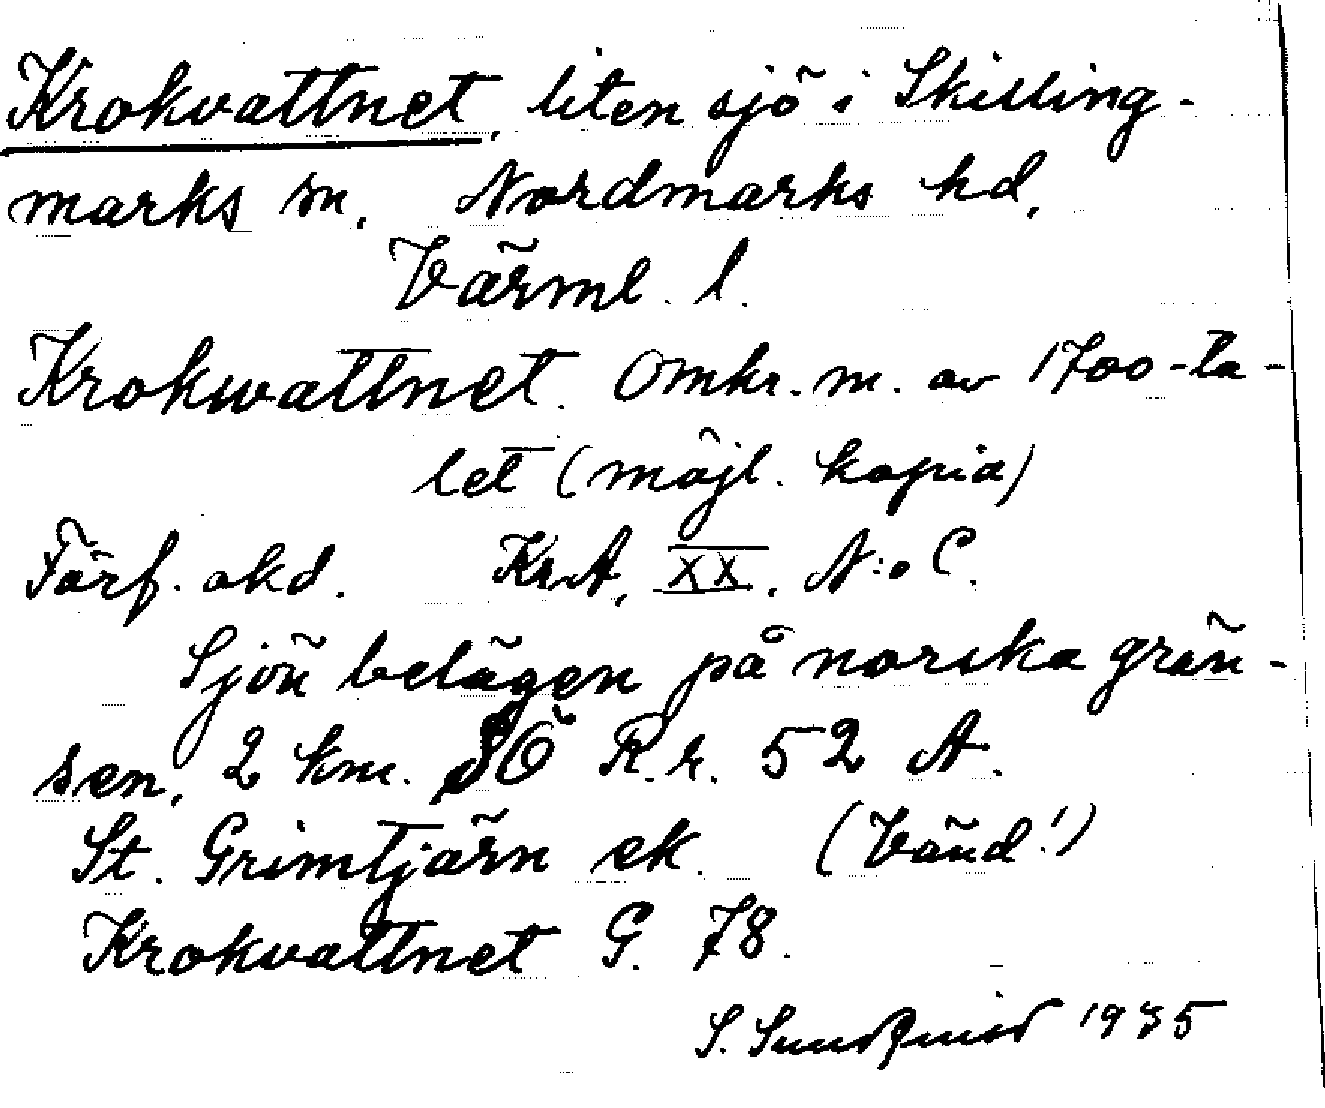 Krokvattnet, liten sjö i Skilling-
marks sn, Nordmarks hd,
Värml. l.
Krokwattnet. Omkr. m. av 1700-ta-
let (möjl. kopia)
Förf. okd. KrA, XX, N:o C.
Sjön belägen på norska grän-
sen, 2 km. SÖ R.r. 52 A.
St. Grimtjärn ek. (Vänd!)
Krokvattnet G. 78.
S. Sundqvist 1935